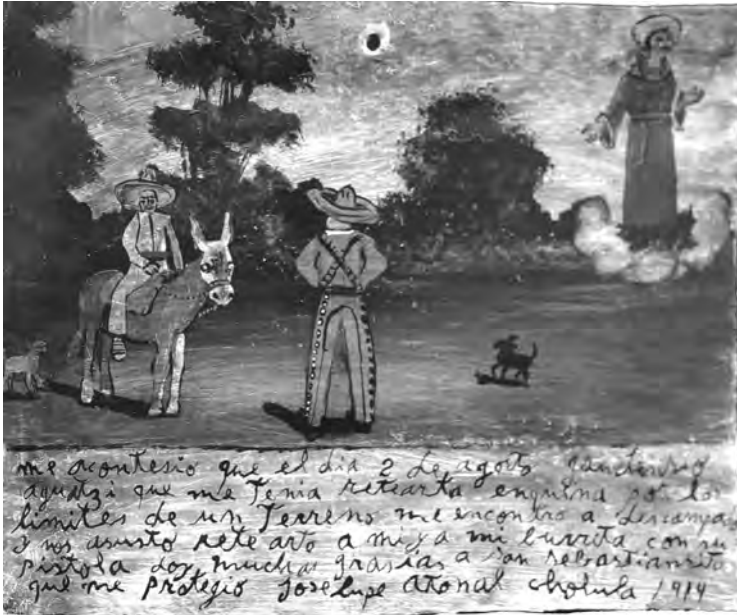 me acontesio que el dia 2 de agosto
que me Tenia retearta enquina por los
limites de un Terreno me encontro a descampado
y nos asusto rete arto a mi ya mi burrita con su
pistola doy muchas grasias a san sebastiansito
que me protegio Joselupe atonal cholula 1914